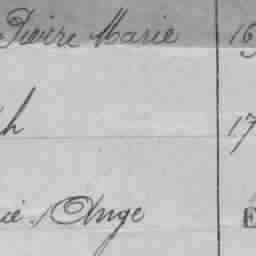 Pierre Marie 16
h 17
ie Ange E